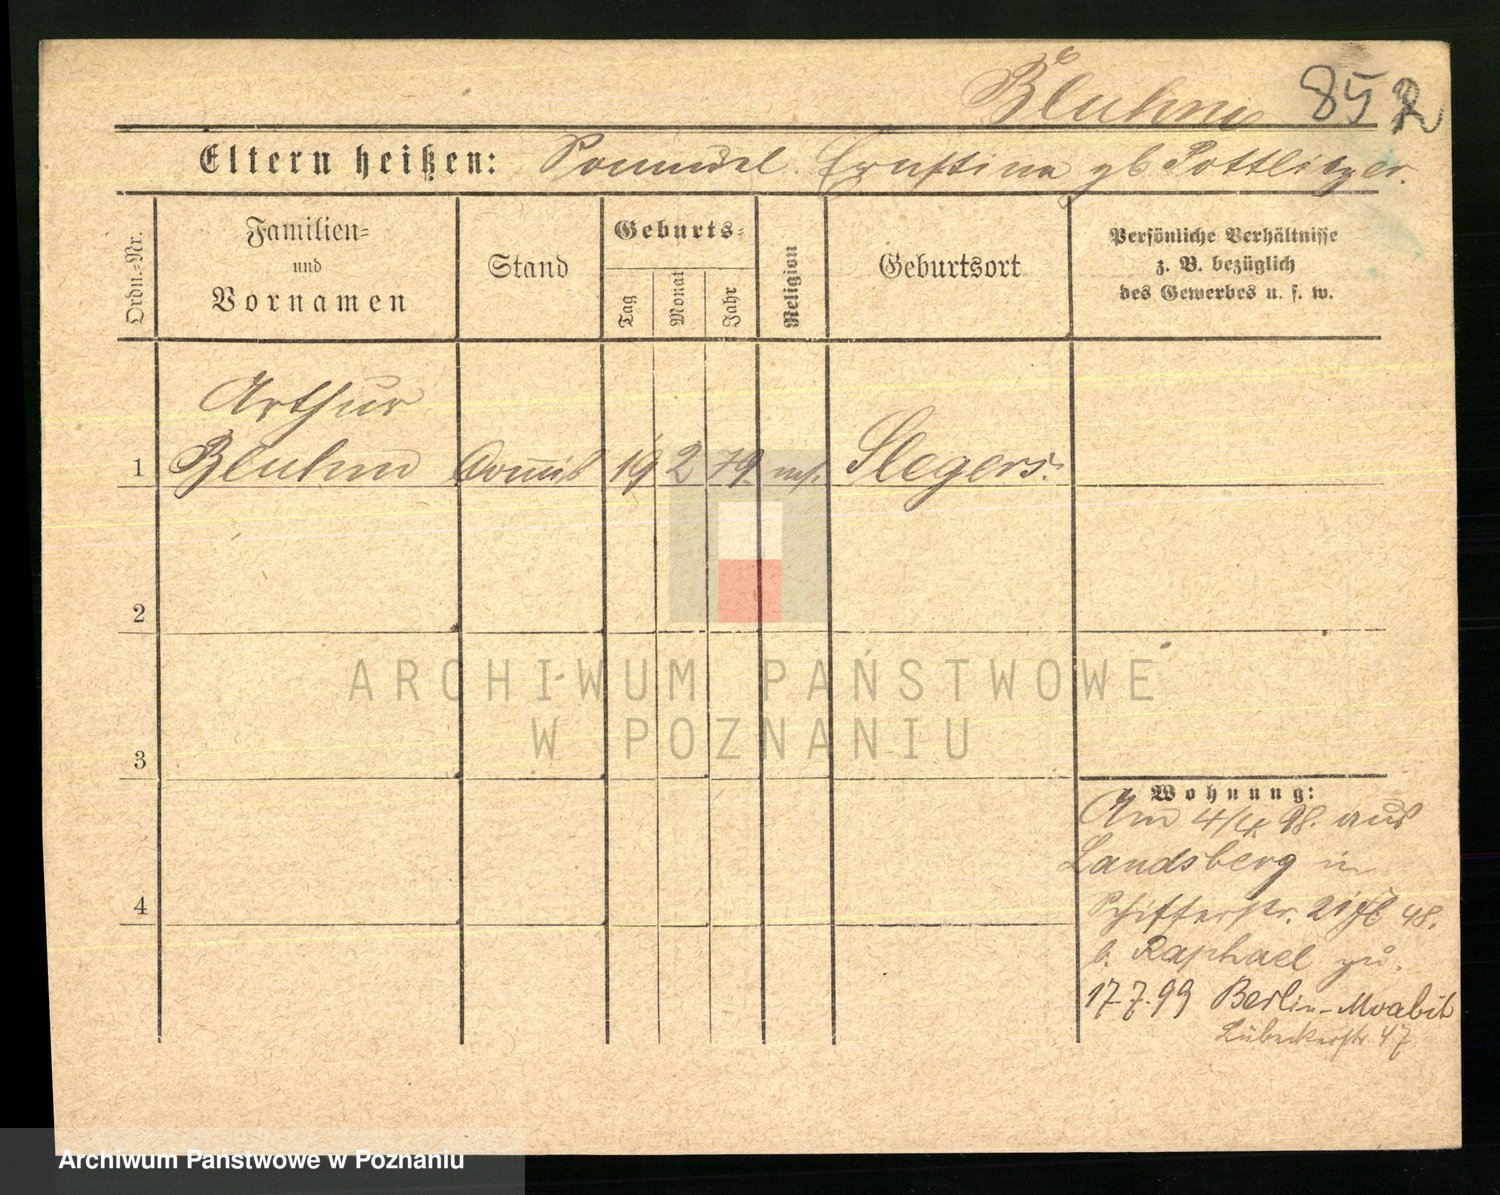 Bluhm 85
Eltern heißen: Samuel Ernstina gb Pottlitzer.
Ordn.-Nr.
Familien-
und
Vornamen
Stand
Geburts-
Tag
Monat
Jahr
Religion
Geburtsort
Persönliche Verhältnisse
z. B. bezüglich
des Gewerbes u. s. w.
Arthur
1 Bluhm Commis 19 2 79. mos.
2
3
4
Wohnung:
Am 98. aus
Landsberg in
Schifferstr. 21
b. Raphael zu.
17.7.99 Berlin-Moabit
Lübeckerstr. 47
ARCHIWUM PAŃSTWOWE
W POZNANIU
Archiwum Państwowe w Poznaniu